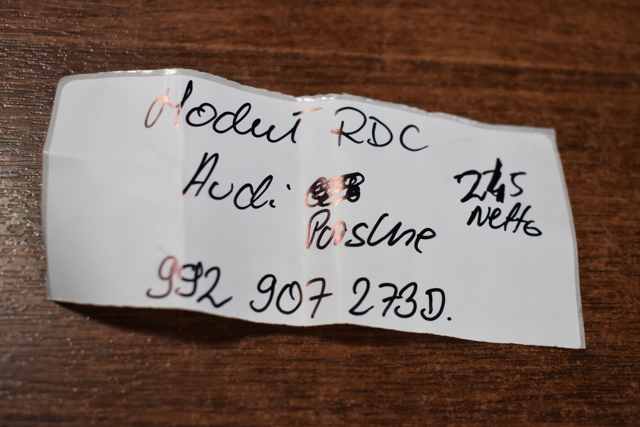 Moduł RDC
Audi
Porsche
245
Netto
992 907 273D.